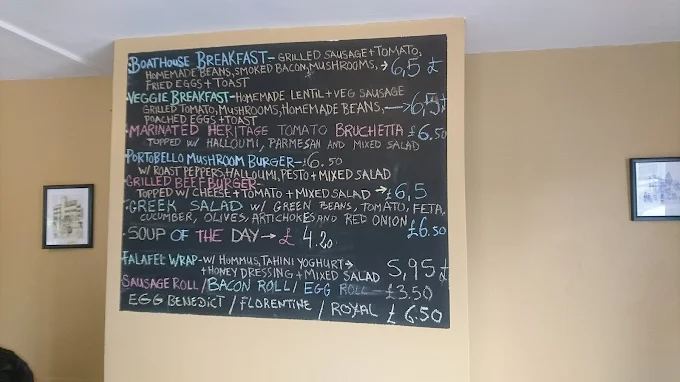 ·BOATHOUSE BREAKFAST- GRILLED SAUSAGE+TOMATO,
HOMEMADE BEANS, SMOKED BACON, MUSHROOMS, → 6,5 £
FRIED EGGS + TOAST
·VEGGIE BREAKFAST-HOMEMADE LENTIL+VEG SAUSAGE
GRILLED TOMATO, MUSHROOMS, HOMEMADE BEANS, → 6,5£
POACHED EGGS + TOAST
·MARINATED HERITAGE TOMATO BRUCHETTA £6.50
TOPPED W/ HALLOUMI, PARMESAN AND MIXED SALAD
·PORTOBELLO MUSHROOM BURGER-£6.50
W/ ROAST PEPPERS, HALLOUMI, PESTO+MIXED SALAD
·GRILLED BEEF BURGER-
TOPPED W/ CHEESE+TOMATO+MIXED SALAD → £6,5
·GREEK SALAD W/ GREEN BEANS, TOMATO, FETA,
CUCUMBER, OLIVES, ARTICHOKES AND RED ONION £6.50
·SOUP OF THE DAY → £ 4.20
·FALAFEL WRAP-W/ HOMMUS, TAHINI YOGHURT→
+HONEY DRESSING+MIXED SALAD 5,95£
SAUSAGE ROLL/BACON ROLL/ EGG ROLL - £3.50
EGG BENEDICT / FLORENTINE / ROYAL £ 6.50